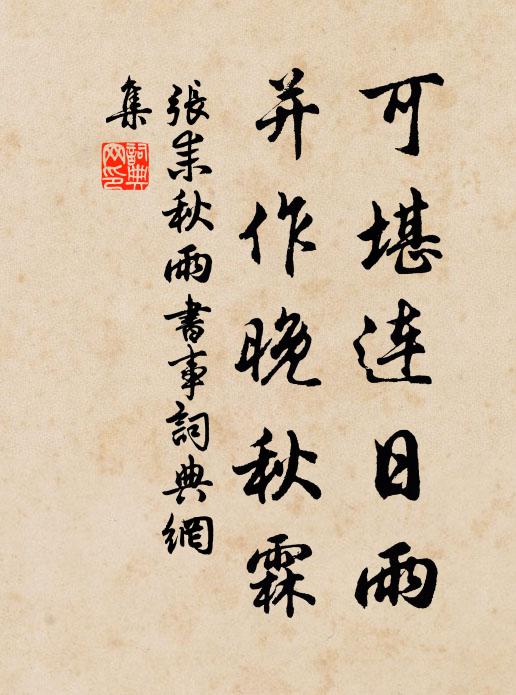 可堪連日雨
并作晚秋霖
張耒秋雨書事詞典網
集
詞典
网印